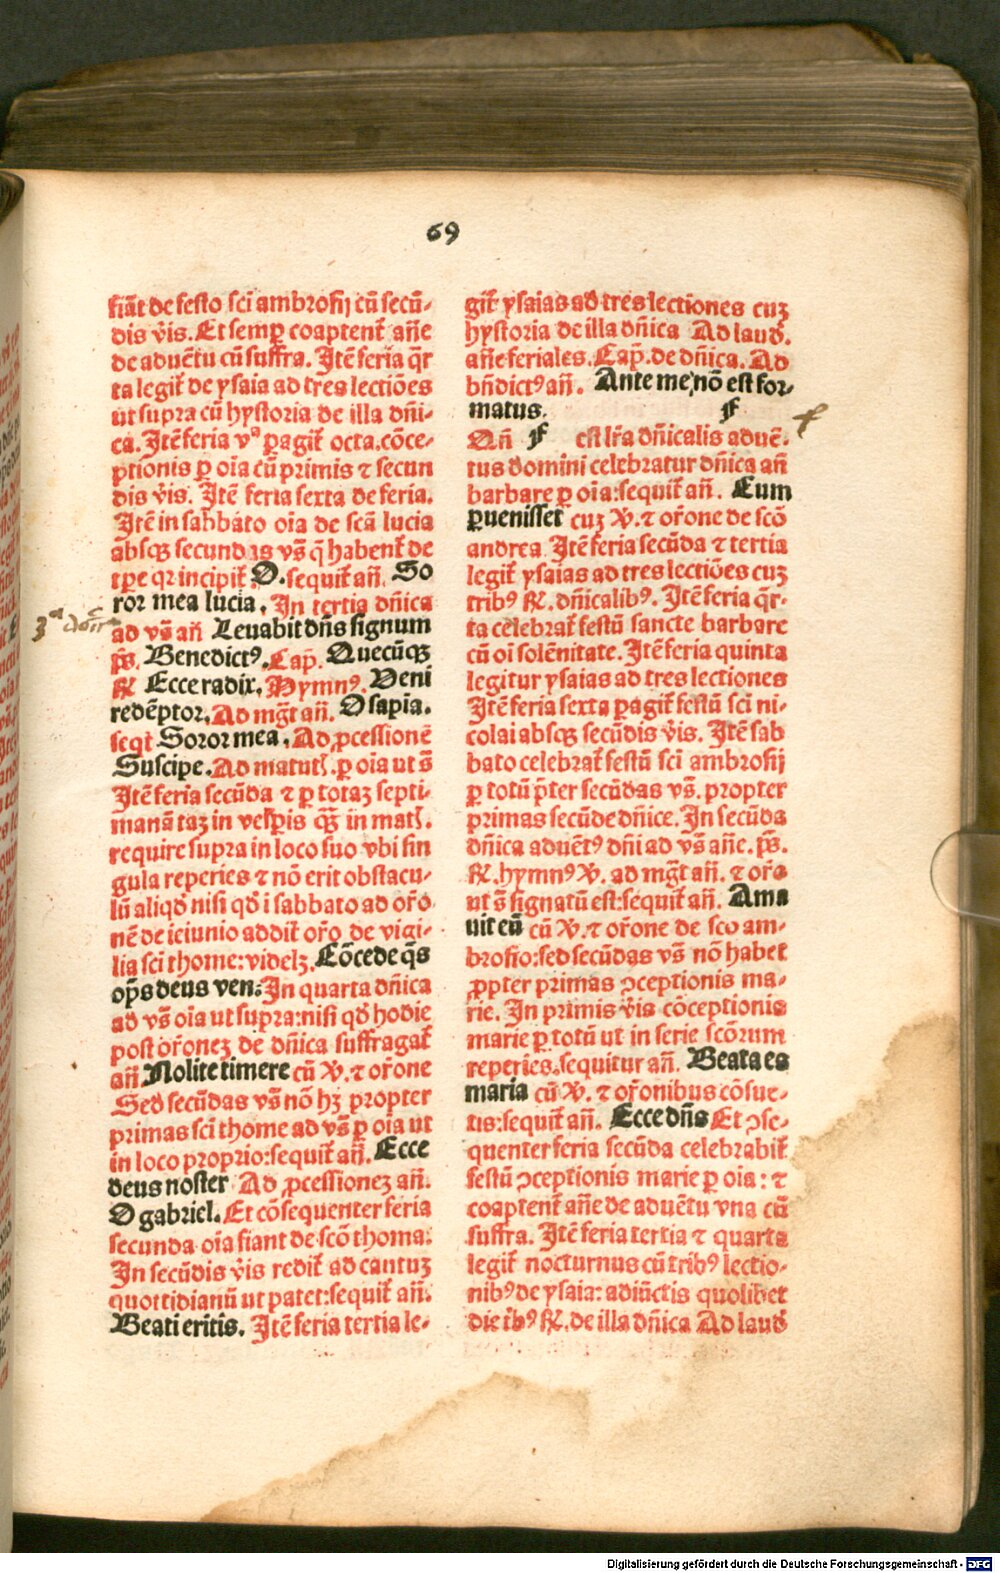 69
fiãt de festo sci ambrosij cũ secũ-
dis ṽis. Et semꝑ coaptent̃ añe
de aduẽtu cũ suffra. Itẽ feria q̃r
ta legit̃ de ysaia ad tres lectiões
ut supra cũ hystoria de illa dñi-
ca. Itẽ feria vª ꝑagit̃ octa. cõce-
ptionis ꝑ oĩa cũ primis ⁊ secun
dis ṽis. Itẽ feria sexta de feria.
Itẽ in sabbato oĩa de scã lucia
absqꝫ secundis vs̃ q̃ habent̃ de
tꝑe qr incipit̃ O. sequit̃ añ. So
ror mea lucia. In tertia dñica
3ª dñica
ad vs̃ añ Leuabit dñs signum
ps̃. Benedictꝰ. Cap̃. Quecũqꝫ
℟ Ecce radix. Hymnꝰ. Veni
redẽptor. Ad mg̃t añ. O sapia.
seqt̃ Soror mea. Ad ꝓcessionẽ
Suscipe. Ad matut̃. ꝑ oĩa ut s̃
Itẽ feria secũda ⁊ ꝑ totaꝫ septi-
manã taꝫ in vesꝑis qꝫ̃ in mat̃.
require supra in loco suo vbi sin
gula reperies ⁊ nõ erit obstacu-
lũ aliqd̃ nisi qd̃ i sabbato ad oro-
nẽ de ieiunio addit̃ oro de vigi-
lia sci thome: videlꝫ. Cõcede q̃s
op̃s deus ven: In quarta dñica
ad vs̃ oĩa ut supra: nisi qd̃ hodie
post oroneꝫ de dñica suffragat̃
añ Nolite timere cũ ℣. ⁊ orone
Sed secũdas vs̃ nõ hꝫ propter
primas sci thome ad vs̃ ꝑ oĩa ut
in loco proprio: sequit̃ añ. Ecce
deus noster Ad ꝓcessioneꝫ añ.
O gabriel. Et cõsequenter feria
secunda oĩa fiant de scõ thoma:
In secũdis ṽis redit̃ ad cantuꝫ
quottidianũ ut patet: sequit̃ añ:
Beati eritis. Itẽ feria tertia le-
git̃ ysaias ad tres lectiones cuꝫ
hystoria de illa dñica Ad laud̃.
añe feriales. Cap̃. de dñica. Ad
bñdictꝰ añ. Ante me, nõ est for-
matus. F
Qñ F est lr̃a dñicalis aduẽ-
tus domini celebratur dñica añ
barbare ꝑ oĩa: sequit̃ añ. Cum
ꝑuenisset cuꝫ ℣. ⁊ orone de scõ
andrea Itẽ feria secũda ⁊ tertia
legit̃ ysaias ad tres lectiões cuꝫ
tribꝰ ℟. dñicalibꝰ. Itẽ feria q̃r-
ta celebrat̃ festũ sancte barbare
cũ oi solẽnitate. Itẽ feria quinta
legitur ysaias ad tres lectiones
Itẽ feria sexta ꝑagit̃ festũ sci ni-
colai absqꝫ secũdis ṽis. Itẽ sab
bato celebrat̃ festũ sci ambrosij
ꝑ totũ p̃ter secũdas vs̃. propter
primas secũde dñice. In secũda
dñica aduẽtꝰ dñi ad vs̃ añe. ps̃.
℟. hymnꝰ ℣. ad mg̃t añ. ⁊ oro
ut s̃ signatũ est: sequit̃ añ. Ama
uit eũ cũ ℣. ⁊ orone de sco am-
brosio: sed secũdas vs̃ nõ habet
ꝓpter primas ꝯceptionis ma-
rie. In primis ṽis cõceptionis
marie ꝑ totũ ut in serie scõrum
reperies. sequitur añ. Beata es
maria cũ ℣. ⁊ oronibus cõsue-
tis: sequit̃ añ. Ecce dñs Et ꝯse-
quenter feria secũda celebrabit̃
festũ ꝯceptionis marie ꝑ oĩa: ⁊
coaptent̃ añe de aduẽtu vna cũ
suffra. Itẽ feria tertia ⁊ quarta
legit̃ nocturnus cũ tribꝰ lectio-
nibꝰ de ysaia: adiũctis quolibet
die t̃bꝰ ℟. de illa dñica Ad laud̃
Digitalisierung gefördert durch die Deutsche Forschungsgemeinschaft - DFG